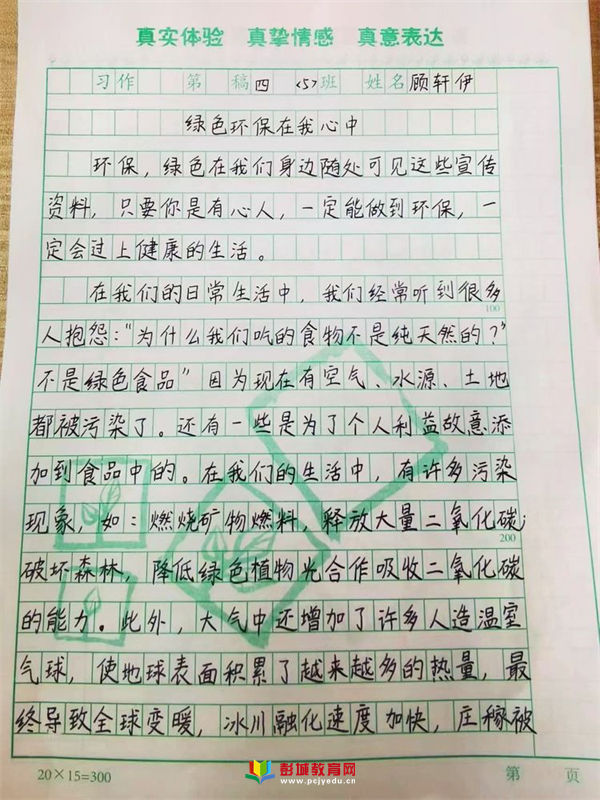 真实体验 真挚情感 真意表达
习作 第 稿四 <5>班 姓名顾轩伊
绿色环保在我心中
环保，绿色在我们身边随处可见这些宣传
资料，只要你是有心人，一定能做到环保，一
定会过上健康的生活。
在我们的日常生活中，我们经常听到很多
100
人抱怨：“为什么我们吃的食物不是纯天然的？”
不是绿色食品”因为现在有空气、水源、土地
都被污染了。还有一些是为了个人利益故意添
加到食品中的。在我们的生活中，有许多污染
现象，如：燃烧矿物燃料，释放大量二氧化碳；
200
破坏森林，降低绿色植物光合作吸收二氧化碳
的能力。此外，大气中还增加了许多人造温室
气球，使地球表面积累了越来越多的热量，最
终导致全球变暖，冰川融化速度加快，庄稼被
20×15=300
第 页
彭城教育网
www.pcjyedu.cn